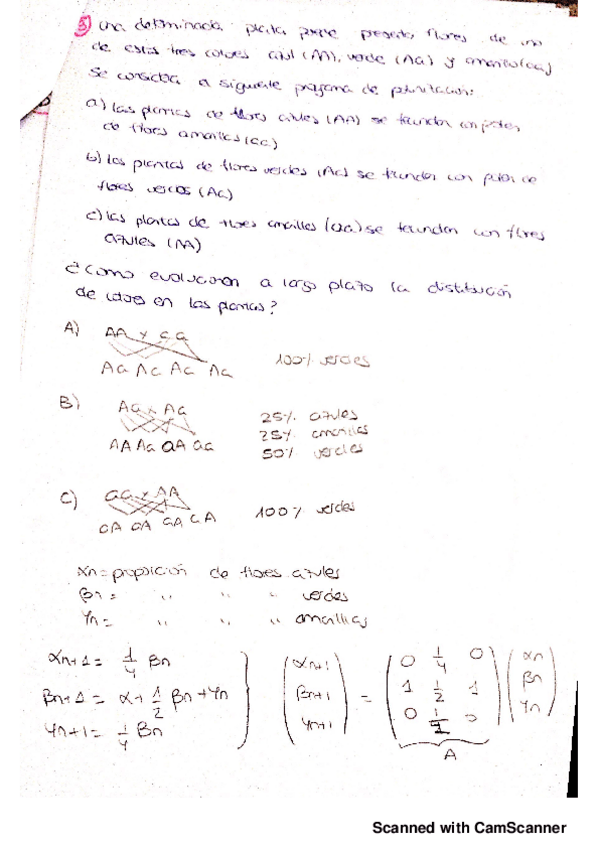 5) una determinada planta puede presentar flores de uno
de estos tres colores azul (AA), verde (Aa) y amarillo (aa)
se considera el siguiente programa de polinizacion:
a) las plantas de flores azules (AA) se fecundan con polen
de flores amarillas (aa)
b) las plantas de flores verdes (Aa) se fecundan con polen de
flores verdes (Aa)
c) las plantas de flores amarillas (aa) se fecundan con flores
azules (AA)
¿Como evolucionan a largo plazo la distribución
de colores en las plantas?
A) AA x aa
Aa Aa Aa Aa 100% verdes
B) Aa x Aa
AA Aa aA aa
25% azules
25% amarillas
50% verdes
C) aa x AA
aA aA aA aA 100% verdes
αn = proporción de flores azules
βn = " " " verdes
γn = " " " amarillas
αn+1 = 1/4 βn
βn+1 = α + 1/2 βn + γn
γn+1 = 1/4 βn
(αn+1 βn+1 γn+1) = (0 1/4 0
1 1/2 1
0 0) (αn βn γn)
A
Scanned with CamScanner